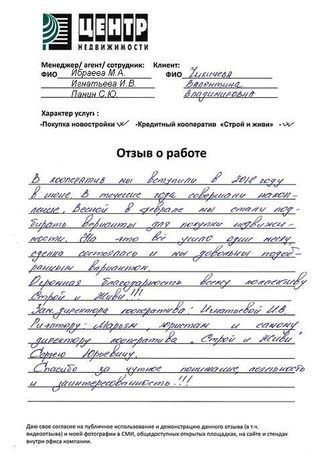 ЦЕНТР
НЕДВИЖИМОСТИ
Менеджер/ агент/ сотрудник: Клиент:
ФИО Ибраева М.А. ФИО Чикичева
Игнатьева И.В. Валентина
Панин С.Ю. Владимировна
Характер услуг:
-Покупка новостройки -Кредитный кооператив «Строй и живи» -
Отзыв о работе
В кооператив мы вступили в 2012 году
в июне. В течение года совершали накоп-
ление. Весной в феврале мы стали под-
бирать варианты для покупки недвижи-
мости. На это всё ушло один месяц,
сделка состоялась и мы довольны подоб-
ранным вариантом.
Огромная благодарность всему коллективу
Строй и Живи!!!
Зам. директора кооператива: Игнатьевой И.В.
Риэлтору: Марьям, юристам и самому
директору кооператива „Строй и Живи"
Сергею Юрьевичу.
Спасибо за чуткое понимание лояльность
и заинтересованность!!!
Даю свое согласие на публичное использование и демонстрацию данного отзыва (в т.ч.
видеоотзыва) и моей фотографии в СМИ, общедоступных открытых площадках, на сайте и стендах
внутри офиса компании.